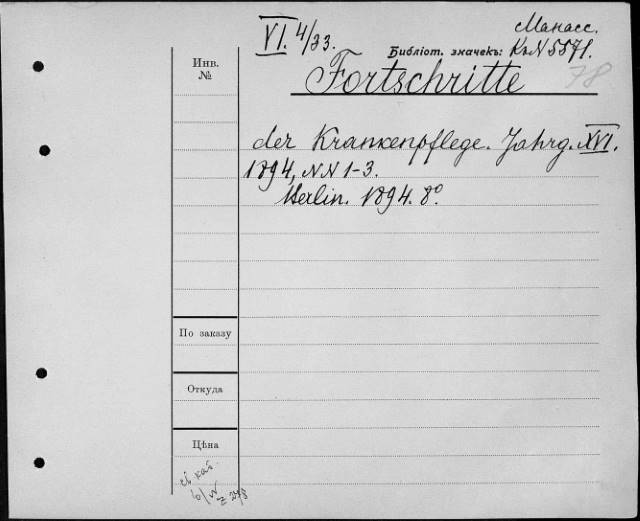 Манасс.
VI. 4/33.
Библіот. значекъ: К. N 5571.
Инв.
№
Fortschritte
78
der Krankenpflege. Jahrg. XVI.
1894, NN 1-3.
Berlin. 1894. 8°.
По заказу
Откуда
Цѣна